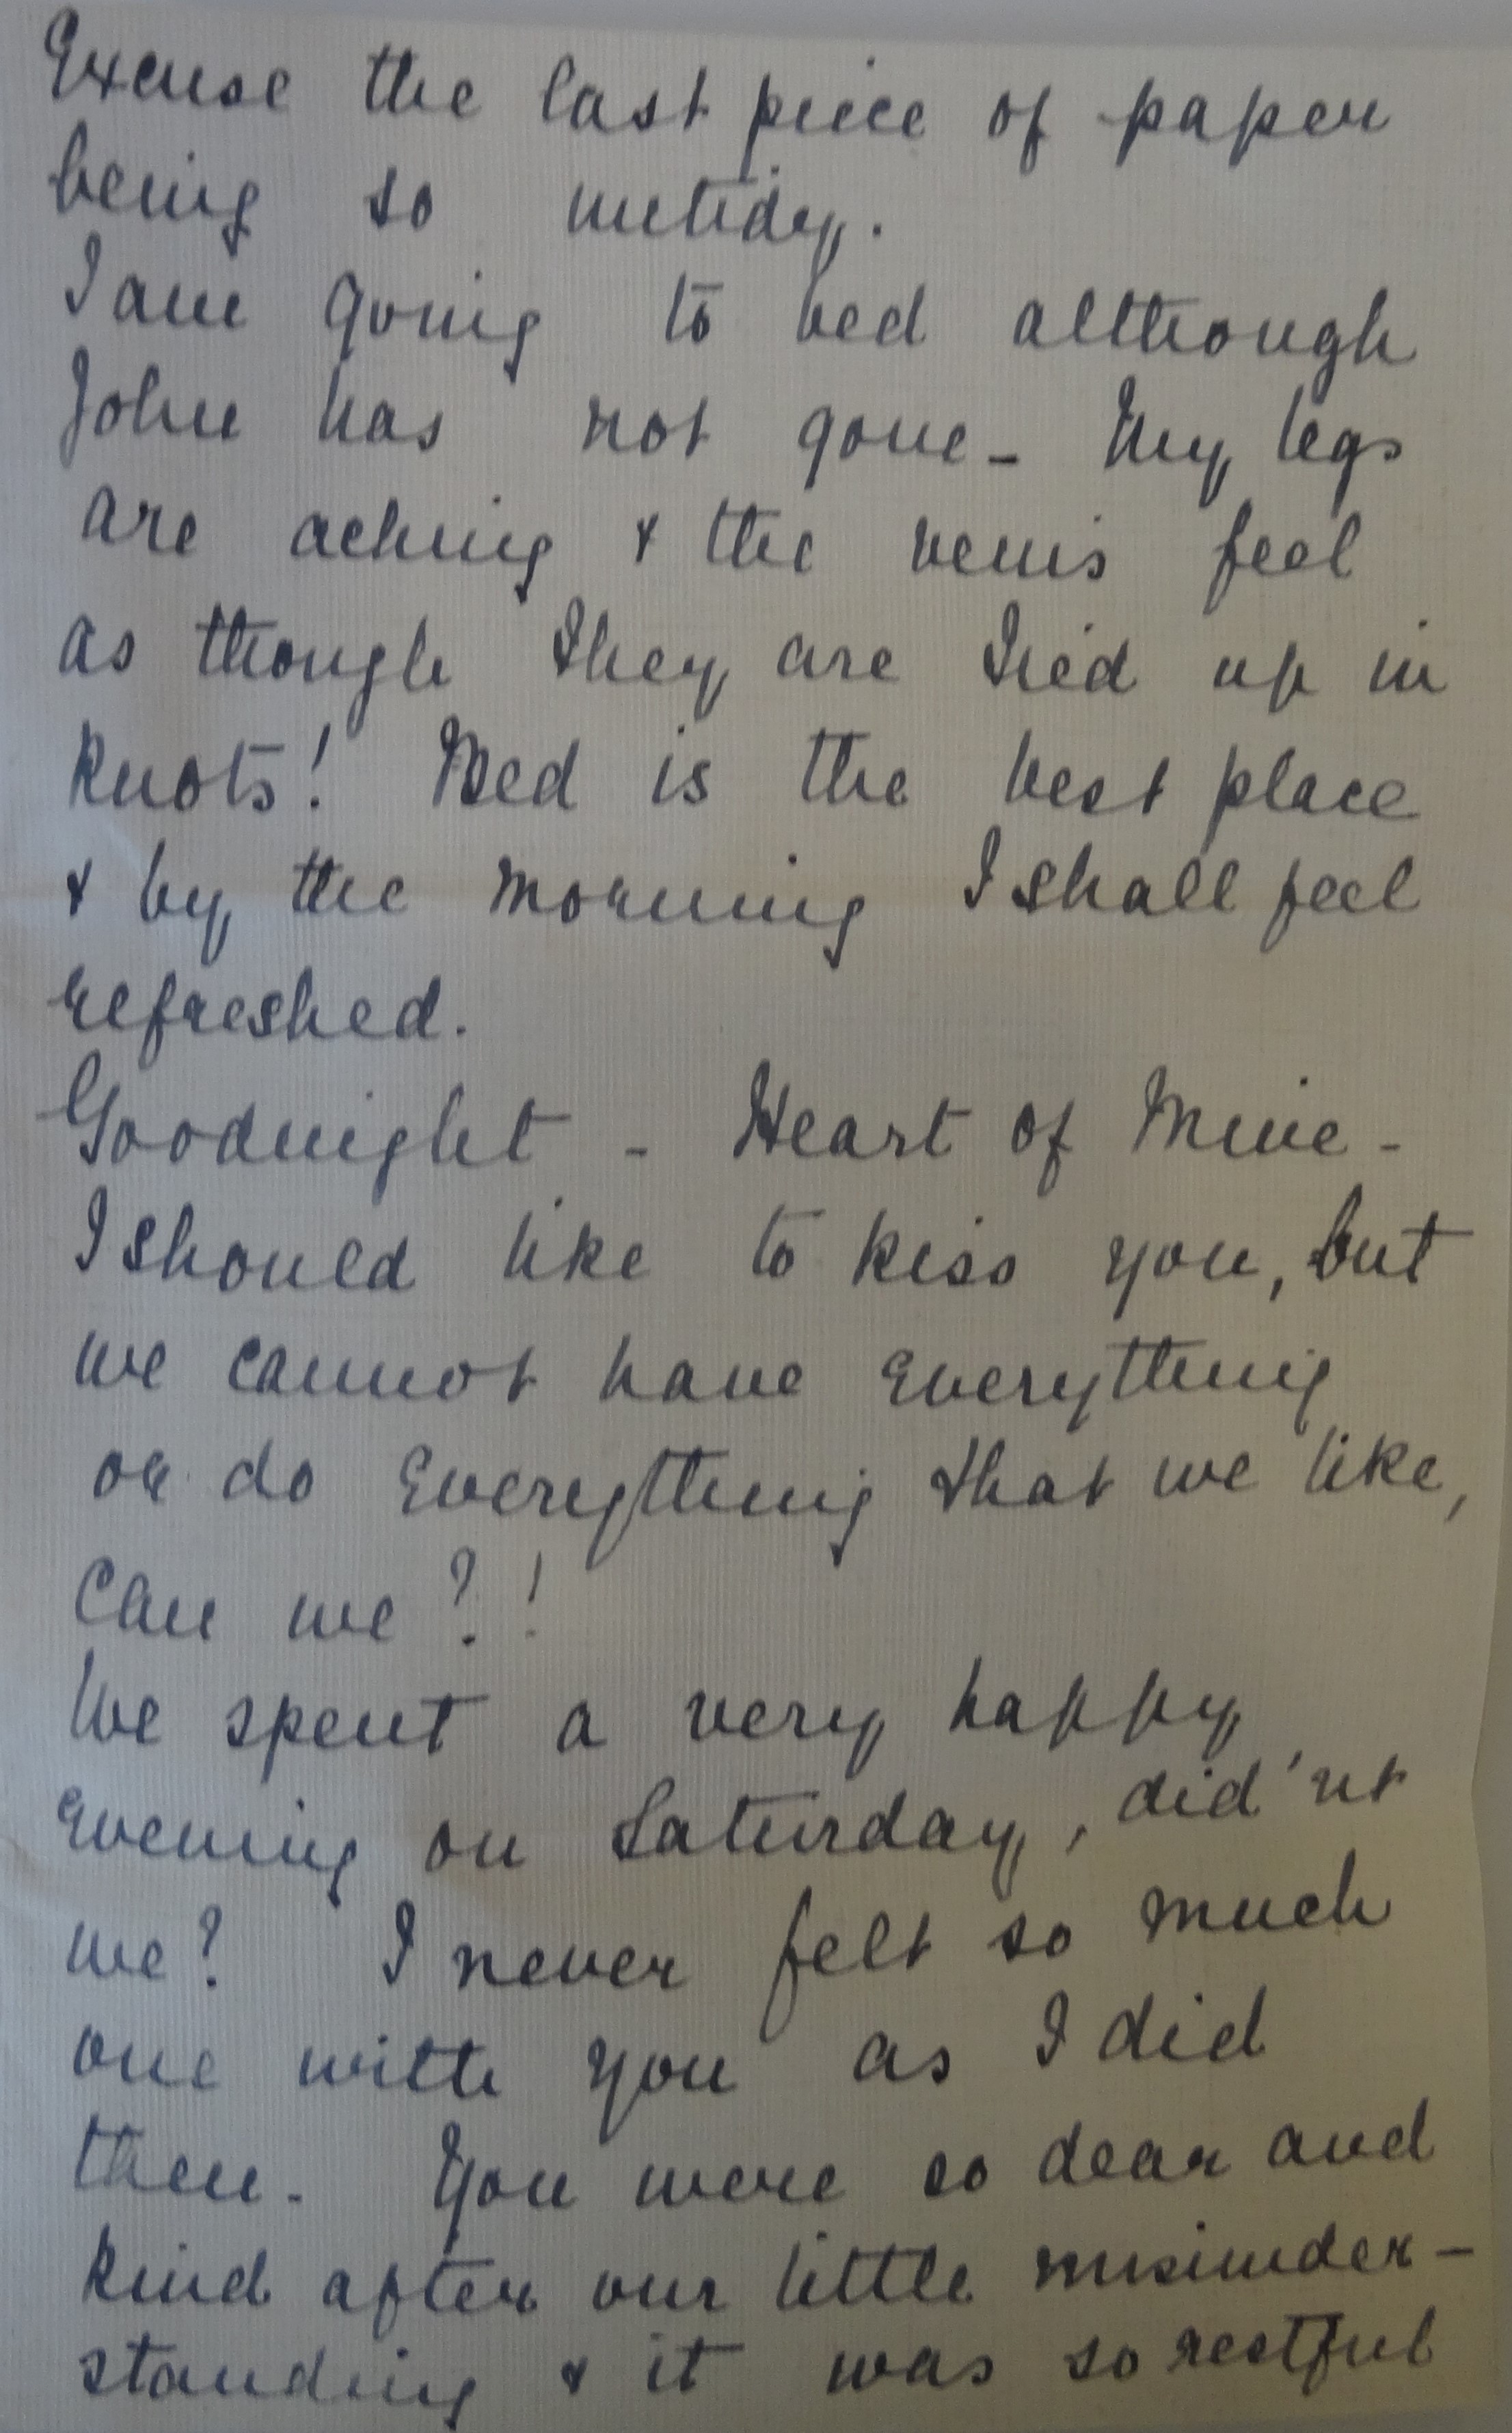 Excuse the last piece of paper
being so untidy.
I am going to bed although
John has not gone - My legs
are aching & the veins feel
as though they are tied up in
knots! Bed is the best place
& by the morning I shall feel
refreshed.
Goodnight - Heart of Mine -
I should like to kiss you, but
we cannot have everything
or do everything that we like,
can we?!
We spent a very happy
evening on Saturday, did'nt
we? I never felt so much
one with you as I did
then. You were so dear and
kind after our little misunder-
standing & it was so restful